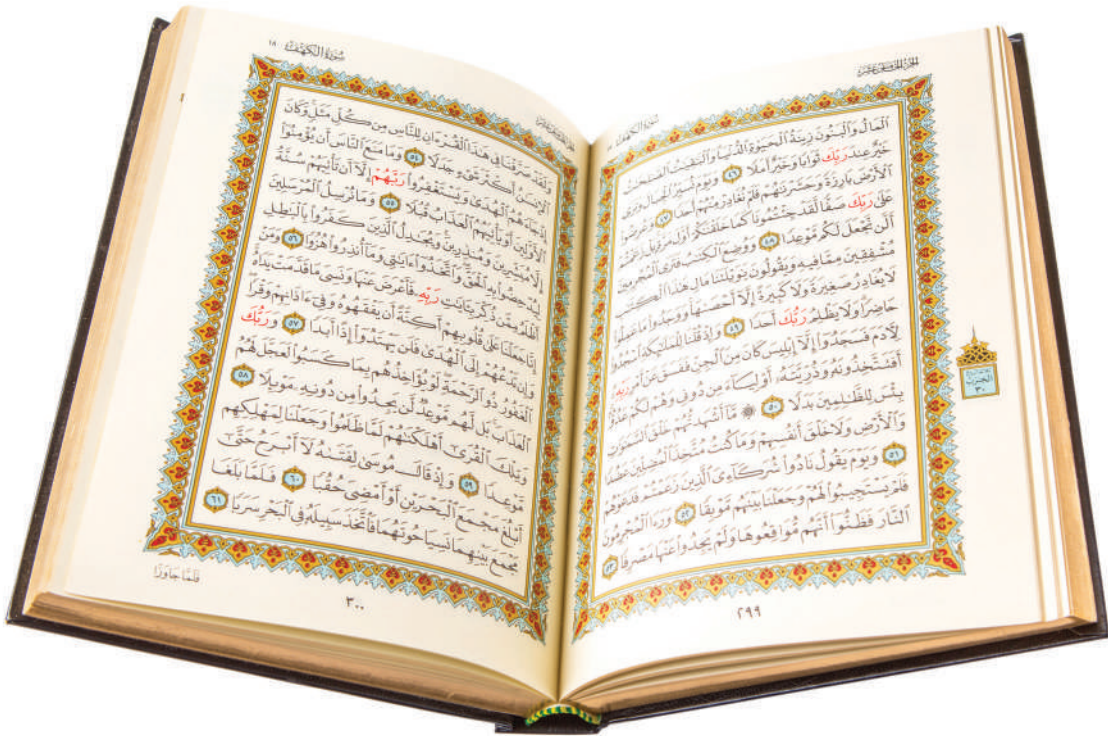 الجزء الخامس عشر
سُورَةُ الكَهْفِ
ٱلْمَالُ وَٱلْبَنُونَ زِينَةُ ٱلْحَيَوٰةِ ٱلدُّنْيَا وَٱلْبَٰقِيَٰتُ ٱلصَّٰلِحَٰتُ
خَيْرٌ عِندَ رَبِّكَ ثَوَابًا وَخَيْرٌ أَمَلًا ٤٦ وَيَوْمَ نُسَيِّرُ ٱلْجِبَالَ وَتَرَى
ٱلْأَرْضَ بَارِزَةً وَحَشَرْنَٰهُمْ فَلَمْ نُغَادِرْ مِنْهُمْ أَحَدًا ٤٧ وَعُرِضُوا۟
عَلَىٰ رَبِّكَ صَفًّا لَّقَدْ جِئْتُمُونَا كَمَا خَلَقْنَٰكُمْ أَوَّلَ مَرَّةٍۭ بَلْ زَعَمْتُمْ
أَلَّن نَّجْعَلَ لَكُم مَّوْعِدًا ٤٨ وَوُضِعَ ٱلْكِتَٰبُ فَتَرَى ٱلْمُجْرِمِينَ
مُشْفِقِينَ مِمَّا فِيهِ وَيَقُولُونَ يَٰوَيْلَتَنَا مَالِ هَٰذَا ٱلْكِتَٰبِ
لَا يُغَادِرُ صَغِيرَةً وَلَا كَبِيرَةً إِلَّآ أَحْصَىٰهَا وَوَجَدُوا۟ مَا عَمِلُوا۟
حَاضِرًا وَلَا يَظْلِمُ رَبُّكَ أَحَدًا ٤٩ وَإِذْ قُلْنَا لِلْمَلَٰٓئِكَةِ ٱسْجُدُوا۟
لِءَادَمَ فَسَجَدُوٓا۟ إِلَّآ إِبْلِيسَ كَانَ مِنَ ٱلْجِنِّ فَفَسَقَ عَنْ أَمْرِ رَبِّهِۦٓ
أَفَتَتَّخِذُونَهُۥ وَذُرِّيَّتَهُۥٓ أَوْلِيَآءَ مِن دُونِى وَهُمْ لَكُمْ عَدُوٌّۢ
بِئْسَ لِلظَّٰلِمِينَ بَدَلًا ٥٠ ۞ مَّآ أَشْهَدتُّهُمْ خَلْقَ ٱلسَّمَٰوَٰتِ
وَٱلْأَرْضِ وَلَا خَلْقَ أَنفُسِهِمْ وَمَا كُنتُ مُتَّخِذَ ٱلْمُضِلِّينَ عَضُدًا
٥١ وَيَوْمَ يَقُولُ نَادُوا۟ شُرَكَآءِىَ ٱلَّذِينَ زَعَمْتُمْ فَدَعَوْهُمْ
فَلَمْ يَسْتَجِيبُوا۟ لَهُمْ وَجَعَلْنَا بَيْنَهُم مَّوْبِقًا ٥٢ وَرَءَا ٱلْمُجْرِمُونَ
ٱلنَّارَ فَظَنُّوٓا۟ أَنَّهُم مُّوَاقِعُوهَا وَلَمْ يَجِدُوا۟ عَنْهَا مَصْرِفًا ٥٣
الحزب
٣٠
٢٩٩
سُورَةُ الكَهْفِ ١٨
وَلَقَدْ صَرَّفْنَا فِى هَٰذَا ٱلْقُرْءَانِ لِلنَّاسِ مِن كُلِّ مَثَلٍ وَكَانَ
ٱلْإِنسَٰنُ أَكْثَرَ شَىْءٍ جَدَلًا ٥٤ وَمَا مَنَعَ ٱلنَّاسَ أَن يُؤْمِنُوٓا۟
إِذْ جَآءَهُمُ ٱلْهُدَىٰ وَيَسْتَغْفِرُوا۟ رَبَّهُمْ إِلَّآ أَن تَأْتِيَهُمْ سُنَّةُ
ٱلْأَوَّلِينَ أَوْ يَأْتِيَهُمُ ٱلْعَذَابُ قُبُلًا ٥٥ وَمَا نُرْسِلُ ٱلْمُرْسَلِينَ
إِلَّا مُبَشِّرِينَ وَمُنذِرِينَ وَيُجَٰدِلُ ٱلَّذِينَ كَفَرُوا۟ بِٱلْبَٰطِلِ
لِيُدْحِضُوا۟ بِهِ ٱلْحَقَّ وَٱتَّخَذُوٓا۟ ءَايَٰتِى وَمَآ أُنذِرُوا۟ هُزُوًا ٥٦ وَمَنْ
أَظْلَمُ مِمَّن ذُكِّرَ بِـَٔايَٰتِ رَبِّهِۦ فَأَعْرَضَ عَنْهَا وَنَسِىَ مَا قَدَّمَتْ يَدَاهُ
إِنَّا جَعَلْنَا عَلَىٰ قُلُوبِهِمْ أَكِنَّةً أَن يَفْقَهُوهُ وَفِىٓ ءَاذَانِهِمْ وَقْرًا
وَإِن تَدْعُهُمْ إِلَى ٱلْهُدَىٰ فَلَن يَهْتَدُوٓا۟ إِذًا أَبَدًا ٥٧ وَرَبُّكَ
ٱلْغَفُورُ ذُو ٱلرَّحْمَةِ لَوْ يُؤَاخِذُهُم بِمَا كَسَبُوا۟ لَعَجَّلَ لَهُمُ
ٱلْعَذَابَ بَل لَّهُم مَّوْعِدٌ لَّن يَجِدُوا۟ مِن دُونِهِۦ مَوْئِلًا ٥٨
وَتِلْكَ ٱلْقُرَىٰٓ أَهْلَكْنَٰهُمْ لَمَّا ظَلَمُوا۟ وَجَعَلْنَا لِمَهْلِكِهِم
مَّوْعِدًا ٥٩ وَإِذْ قَالَ مُوسَىٰ لِفَتَىٰهُ لَآ أَبْرَحُ حَتَّىٰٓ
أَبْلُغَ مَجْمَعَ ٱلْبَحْرَيْنِ أَوْ أَمْضِىَ حُقُبًا ٦٠ فَلَمَّا بَلَغَا
مَجْمَعَ بَيْنِهِمَا نَسِيَا حُوتَهُمَا فَٱتَّخَذَ سَبِيلَهُۥ فِى ٱلْبَحْرِ سَرَبًا ٦١
فَلَمَّا جَاوَزَا
٣٠٠